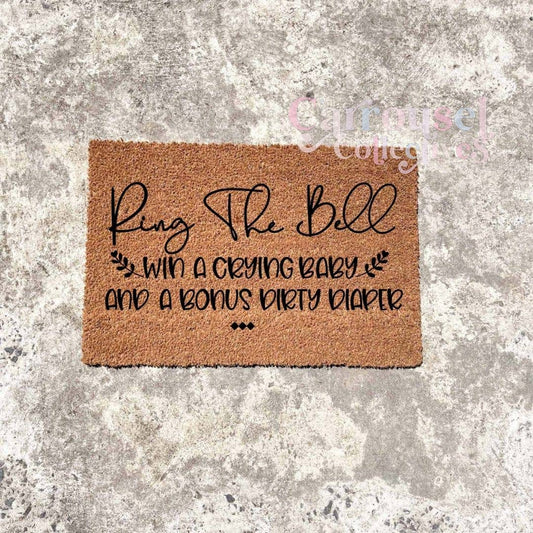 Carousel
Collectives
Ring The Bell
WIN A CRYING BABY
AND A BONUS DIRTY DIAPER